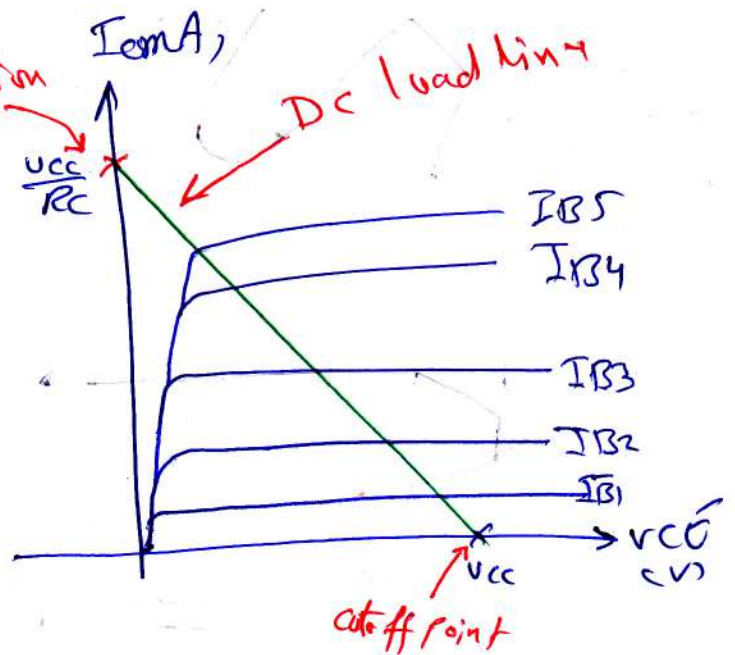 IcmA,
DC load line
VCC
RC
IB5
IB4
IB3
IB2
IB1
VCE
(V)
VCC
cutoff point